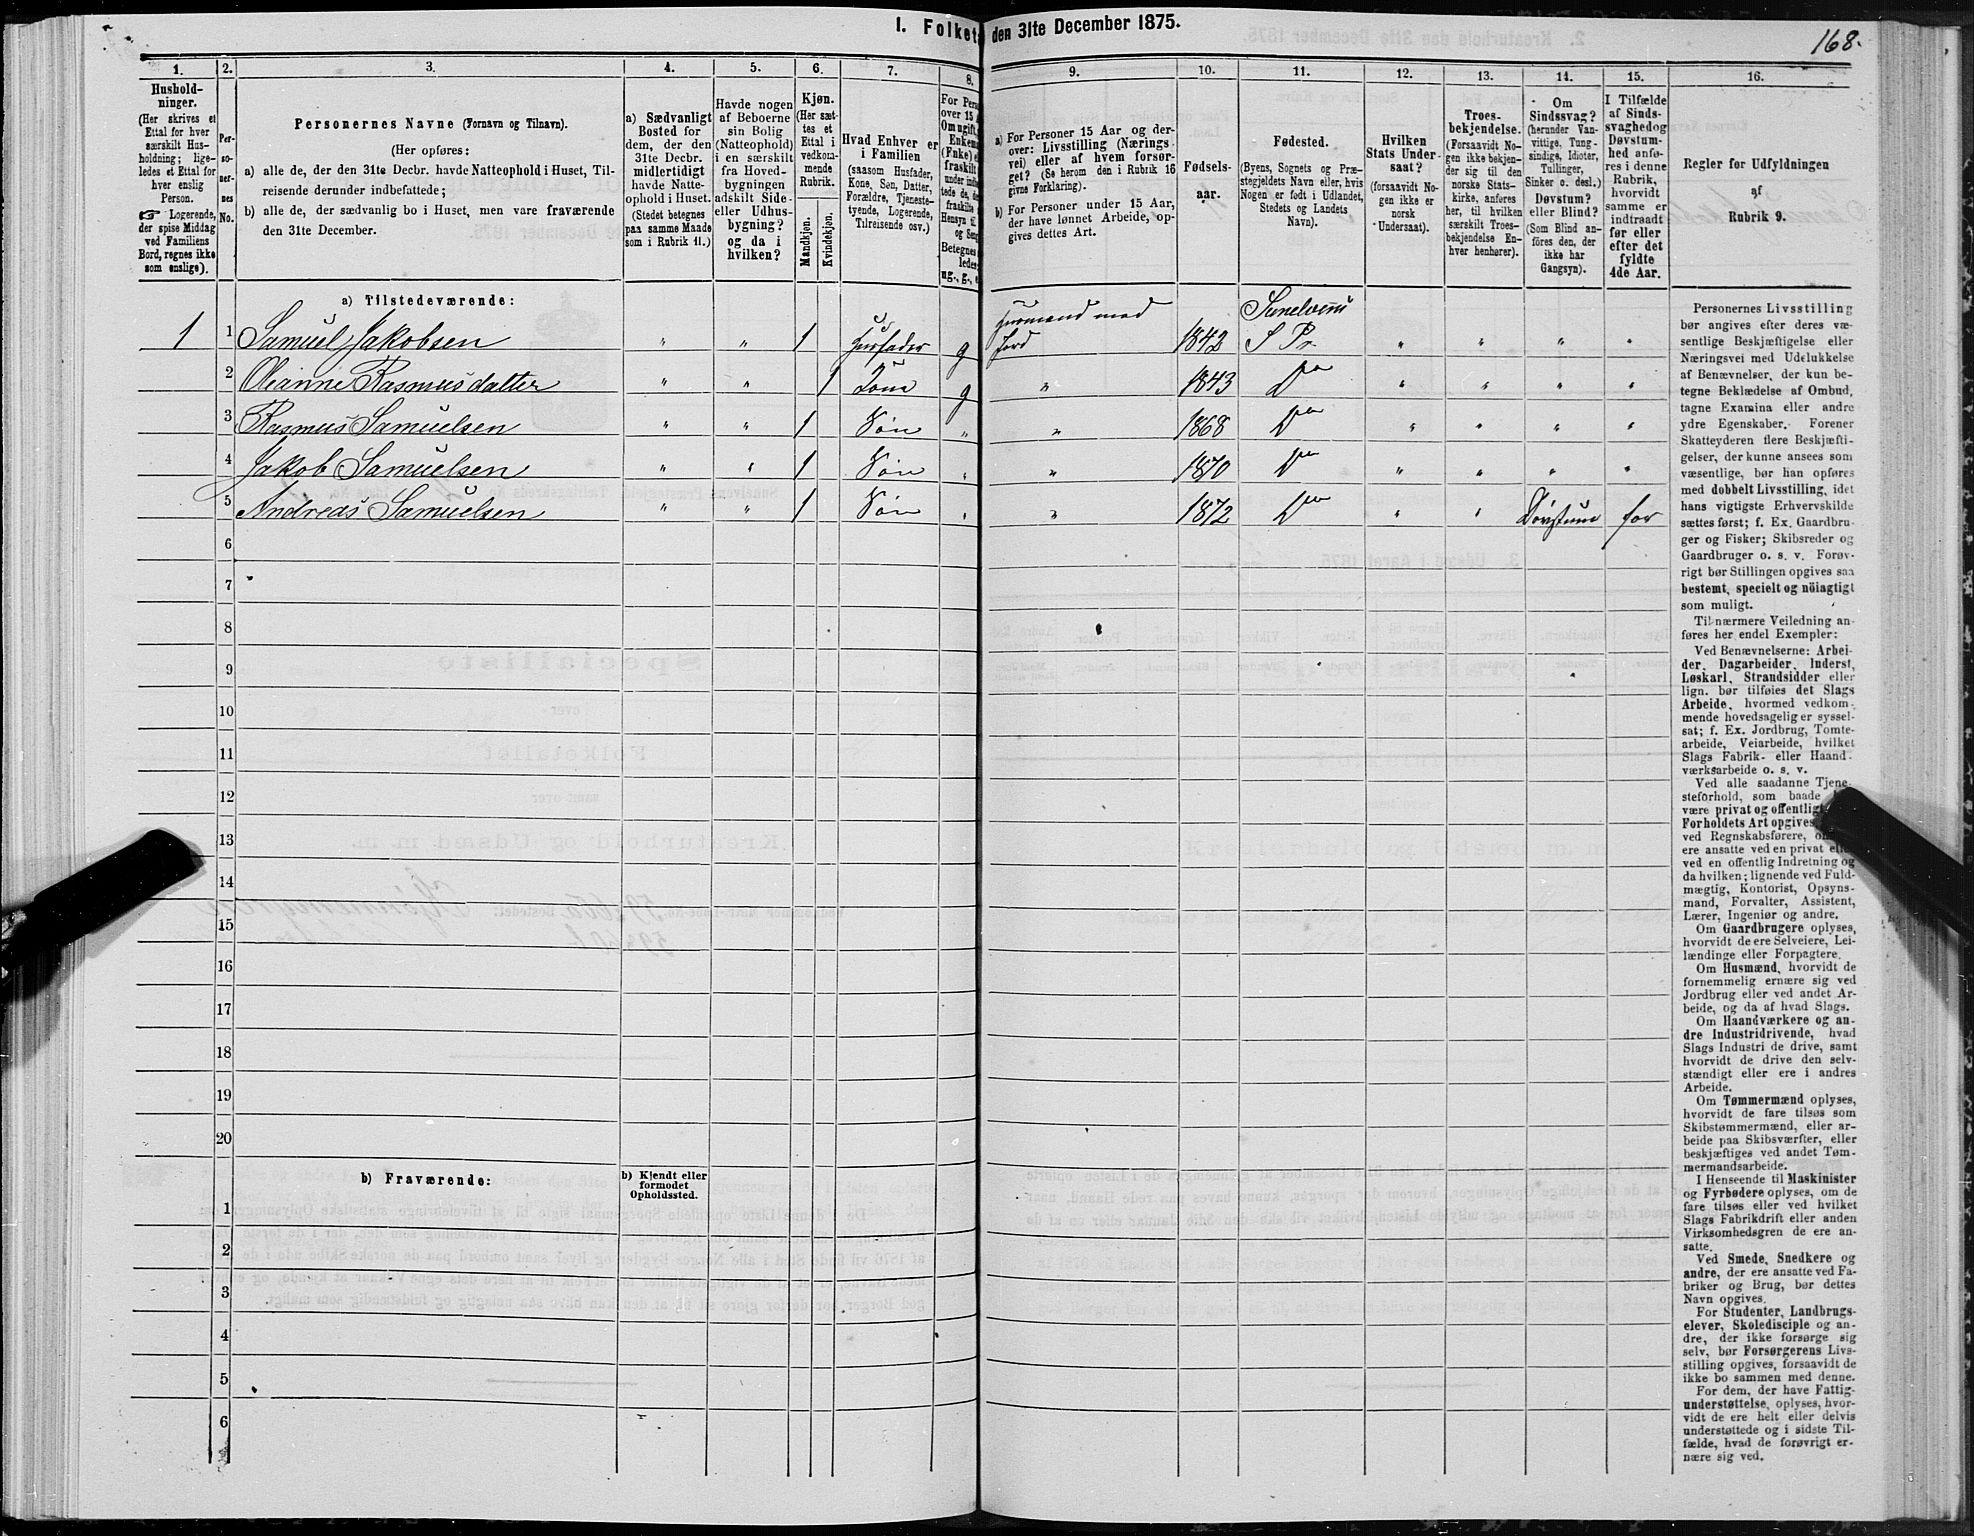 I. Folket den 31te December 1875.
168.
1.
Hushold-
ninger.
(Her skrives et
Ettal for hver
særskilt Hus-
holdning; lige-
ledes et Ettal for
hver enslig
Person.
☞ Logerende,
der spise Middag
ved Familiens
Bord, regnes ikke
som enslige).
2.
Per-
so-
ner-
nes
No.
3.
Personernes Navne (Fornavn og Tilnavn).
(Her opføres:
a) alle de, der den 31te Decbr. havde Natteophold i Huset, Til-
reisende derunder indbefattede;
b) alle de, der sædvanlig bo i Huset, men vare fraværende
den 31te December.
4.
a) Sædvanligt
Bosted for
dem, der den
31te Decbr.
midlertidigt
havde Natte-
ophold i Huset.
(Stedet betegnes
paa samme Maade
som i Rubrik 11.)
5.
Havde nogen
af Beboerne
sin Bolig
(Natteophold)
i en særskilt
fra Hoved-
bygningen
adskilt Side-
eller Udhus-
bygning?
og da i
hvilken?
6.
Kjøn.
(Her sæt-
tes et
Ettal i
vedkom-
mende
Rubrik.
Mandkjøn.
Kvindekjøn.
7.
Hvad Enhver er
i Familien
(saasom Husfader,
Kone, Søn, Datter,
Forældre, Tjeneste-
tyende, Logerende,
Tilreisende osv.)
8.
For Pers
over 15 A
Om ugift,
Enkem
(Enke) e
fraskilt
Betegnes
ledes:
ug., g., e
9.
a) For Personer 15 Aar og der-
over: Livsstilling (Nærings-
vei) eller af hvem forsør-
get? (Se herom den i Rubrik 16
givne Forklaring).
b) For Personer under 15 Aar,
der have lønnet Arbeide, op-
gives dettes Art.
10.
Fødsels-
aar.
11.
Fødested.
(Byens, Sognets og Præ-
stegjeldets Navn eller, hvis
Nogen er født i Udlandet,
Stedets og Landets
Navn).
12.
Hvilken
Stats Under-
saat?
(forsaavidt No-
gen ikke er
norsk
Undersaat).
13.
Troes-
bekjendelse.
(Forsaavidt No-
gen ikke bekjen-
der sig til den
norske Stats-
kirke, anføres
her, til hvilken
særskilt Troes-
bekjendelse En-
hver henhører).
14.
Om
Sindssvag?
(herunder Van-
vittige, Tung-
sindige, Idioter,
Tullinger,
Sinker o. desl.)
Døvstum?
eller Blind?
(Som Blind an-
føres den, der
ikke har
Gangsyn).
15.
I Tilfælde
af Sinds-
svaghed og
Døvstum-
hed anfø-
res i denne
Rubrik,
hvorvidt
samme er
indtraadt
før eller
efter det
fyldte
4de Aar.
16.
Regler for Udfyldningen
af
Rubrik 9.
a) Tilstedeværende:
1 1 Samuel Jakobsen " " 1 Husfader g Husmand med Jord 1842 Sunelvens S Pr. " " " "
2 Olianne Rasmusdatter " " 1 Kone g " 1843 Do " " " "
3 Rasmus Samuelsen " " 1 Søn " " 1868 Do " " " "
4 Jakob Samuelsen " " 1 Søn " " 1870 Do " " " "
5 Andreas Samuelsen " " 1 Søn " " 1872 Do " " Døvstum for
6
7
8
9
10
11
12
13
14
15
16
17
18
19
20
b) Fraværende:
b) Kjendt eller
formodet
Opholdssted.
1
2
3
4
5
6
Personernes Livsstilling
bør angives efter deres væ-
sentlige Beskjæftigelse eller
Næringsvei med Udelukkelse
af Benævnelser, der kun be-
tegne Beklædelse af Ombud,
tagne Examina eller andre
ydre Egenskaber. Forener
Skatteyderen flere Beskjæfti-
gelser, der kunne ansees som
væsentlige, bør han opføres
med dobbelt Livsstilling, idet
hans vigtigste Erhvervskilde
sættes først; f. Ex. Gaardbru-
ger og Fisker; Skibsreder og
Gaardbruger o. s. v. Forøv-
rigt bør Stillingen opgives saa
bestemt, specielt og nöiagtigt
som muligt.
Til nærmere Veiledning an-
føres her endel Exempler:
Ved Benævnelserne: Arbei-
der, Dagarbeider, Inderst,
Løskarl, Strandsidder eller
lign. bør tilføies det Slags
Arbeide, hvormed vedkom-
mende hovedsagelig er syssel-
sat; f. Ex. Jordbrug, Tomte-
arbeide, Veiarbeide, hvilket
Slags Fabrik- eller Haand-
værksarbeide o. s. v.
Ved alle saadanne Tjene-
steforhold, som baade
være privat og offentlig
Forholdets Art opgives
ved Regnskabsførere, om
ere ansatte ved en privat eller
ved en offentlig Indretning og
da hvilken; lignende ved Fuld-
mægtig, Kontorist, Opsyns-
mand, Forvalter, Assistent,
Lærer, Ingeniør og andre.
Om Gaardbrugere oplyses,
hvorvidt de ere Selveiere, Lei-
lændinge eller Forpagtere.
Om Husmænd, hvorvidt de
fornemmelig ernære sig ved
Jordbrug eller ved andet Ar-
beide, og da af hvad Slags.
Om Haandværkere og an-
dre Industridrivende, hvad
Slags Industri de drive, samt
hvorvidt de drive den selv-
stændigt eller ere i andres
Arbeide.
Om Tømmermænd oplyses,
hvorvidt de fare tilsøs som
Skibstømmermænd, eller ar-
beide paa Skibsværfter, eller
beskjæftiges ved andet Tøm-
mermandsarbeide.
I Henseende til Maskinister
og Fyrbødere oplyses, om de
fare tilsøs eller ved hvilket
Slags Fabrikdrift eller anden
Virksomhedsgren de ere an-
satte.
Ved Smede, Snedkere og
andre, der ere ansatte ved Fa-
briker og Brug, bør dettes
Navn opgives.
For Studenter, Landbrugs-
elever, Skoledisciple og an-
dre, der ikke forsørge sig
selv, bør Forsørgerens Livs-
stilling opgives, forsaavidt de
ikke bo sammen med denne.
For dem, der have Fattig-
understøttelse, oplyses, hvor-
vidt de ere helt eller delvis
understøttede og i sidste Til-
fælde, hvad de forøvrigt er-
nære sig ved.